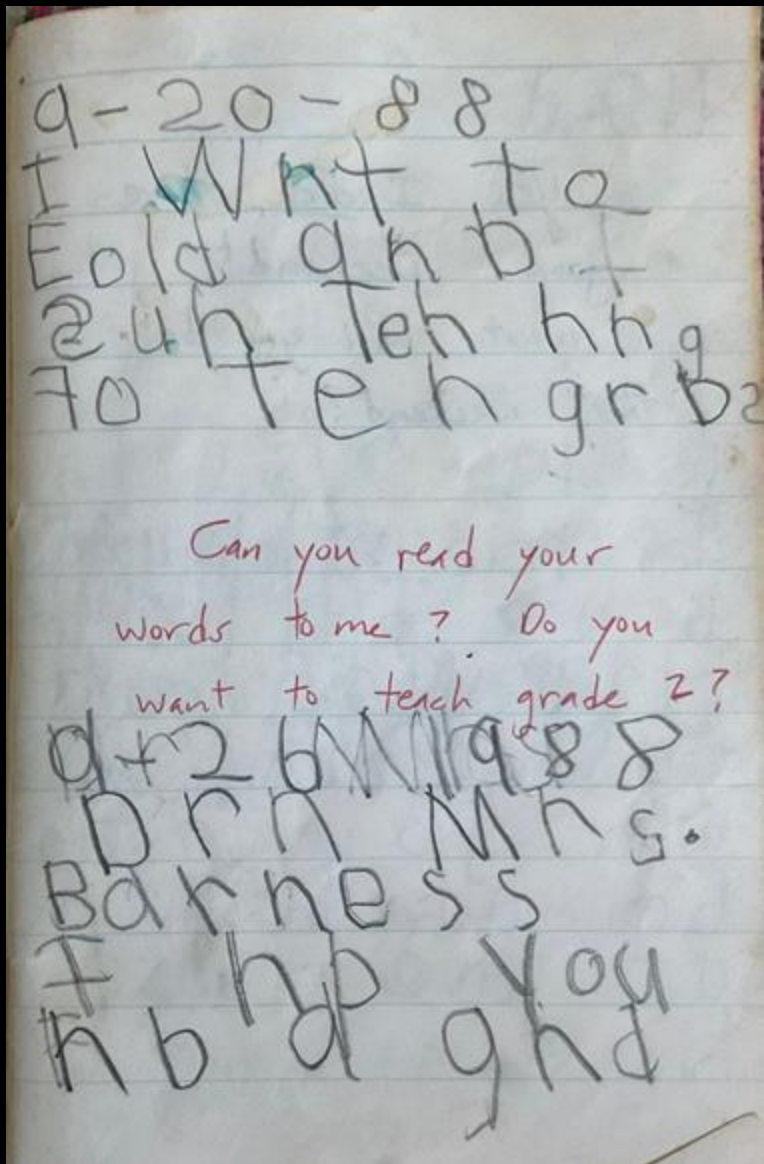 9-20-88
I Wnt to
Eold qnb I
2un Teh hng
To Teh grb2
Can you read your
words to me? Do you
want to teach grade 2?
9-26 1988
Drn Mrs.
Barness
I hp you
hb d ghd